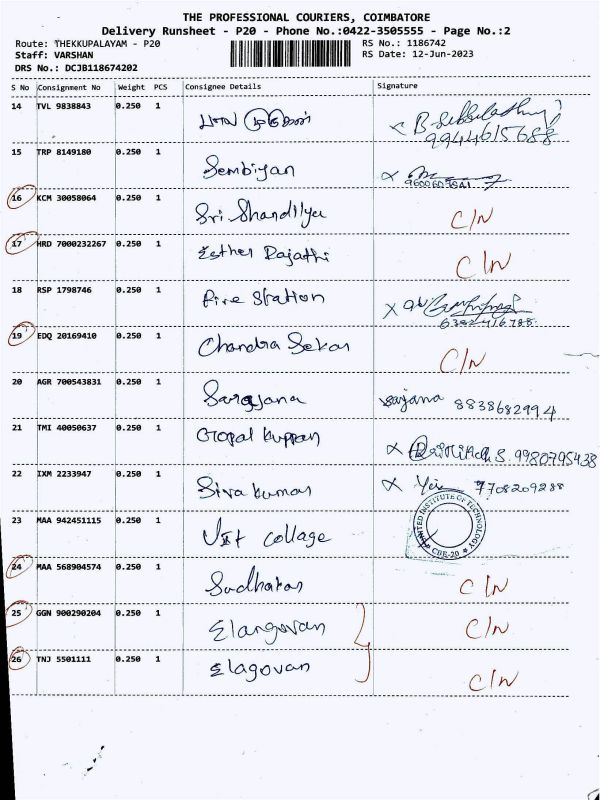 THE PROFESSIONAL COURIERS, COIMBATORE
Delivery Runsheet - P20 - Phone No.:0422-3505555 - Page No.:2
Route: THEKKUPALAYAM - P20 RS No.: 1186742
Staff: VARSHAN RS Date: 12-Jun-2023
DRS No.: DCJB118674202
S No Consignment No Weight PCS Consignee Details Signature
14 TVL 9838843 0.250 1
9944615688
15 TRP 8149180 0.250 1 Sembiyan
16 KCM 30058064 0.250 1 Sri Shandilya C/N
17 HRD 7000232267 0.250 1 Esther Rajathi C/N
18 RSP 1798746 0.250 1 Fire Station
6382416788
19 EDQ 20169410 0.250 1 Chandra Sekar C/N
20 AGR 700543831 0.250 1 Sarajana sarjana 8838682994
21 TMI 40050637 0.250 1 Gopal kuppan 9980795438
22 IXM 2233947 0.250 1 Siva kumar 7708209288
23 MAA 942451115 0.250 1 Uit collage
UNITED INSTITUTE OF TECHNOLOGY
CBE-20
24 MAA 568904574 0.250 1 Sudhakar C/N
25 GGN 900290204 0.250 1 Elangovan C/N
26 TNJ 5501111 0.250 1 Elagovan C/N